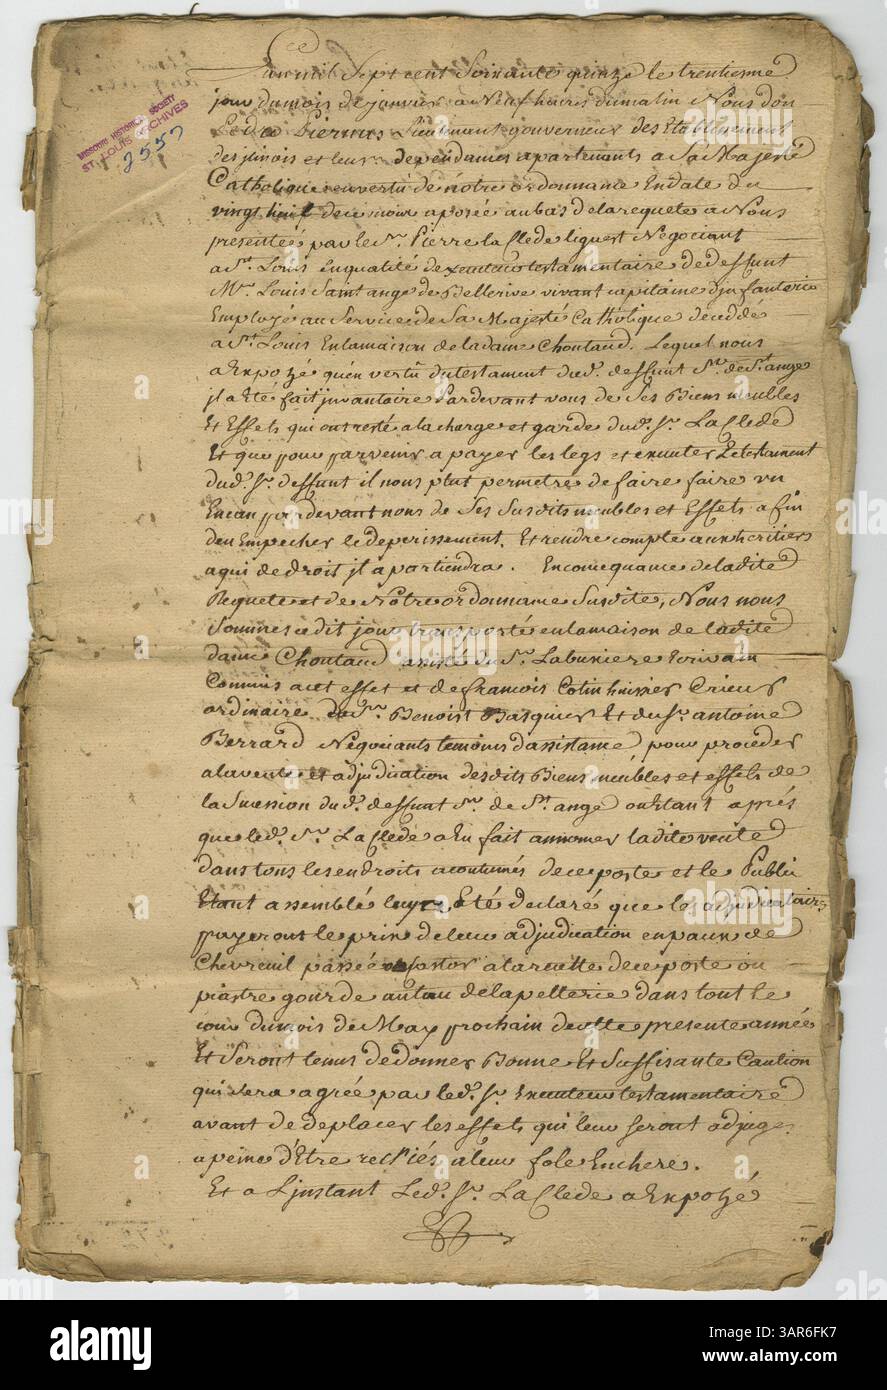 MISSOURI HISTORICAL SOCIETY
ST. LOUIS ARCHIVES
2557
L'an mil Sept cent Soixante quinze le trentieme
jour du mois de janvier a Neuf heures du matin Nous don
Pedro Piernas Lieutenant gouverneur des Etablissements
des jlinois et leurs dependances apartenants a Sa Majesté
Catholique en vertu de nôtre ordonnance En date du
vingt huit de ce mois aposée au bas de la requete a Nous
presentée par le Sr. Pierre la Clede liguest Negociant
a St. Louis En qualité de xecuteur testamentaire de deffunt
Mr. Louis Saint ange de Bellerive vivant capitaine d'jnfanterie
Employé au Service de Sa Majesté Catholique decedé
a St. Louis En la maison de la dame Choutaud. Lequel nous
a Expozé qu'en vertû du testament du d. deffunt Sr. de St. ange
jl a Eté fait jnvantaire Pardevant nous de Ses Biens meubles
Et Effets qui ont resté a la charge et garde du d. Sr. La Clede
Et que pour parvenir a payer les legs et executer le testament
du d. Sr. deffunt il nous plut permetre de faire faire un
Encan pardevant nous de Ses Susdits meubles et Effets a fin
d'en Empecher le deperissement. Et rendre compte aux heritiers
a qui de droit jl apartiendra. En consequance de la dite
Requete et de Nôtre ordonnance Susdite, Nous nous
Sommes ce dit jour transporté en la maison de la dite
dame Choutaud assisté du Sr. Labuxiere Ecrivain
Commis a cet effet et de francois Cotin huissier Crieur
ordinaire du Sr. Benoist Basquier Et du Sr. antoine
Berrard Négociants temoins d'assistance, pour proceder
a la vente et adjudication desdits Biens meubles et effets de
la Succession du d. deffunt Sr. de St. ange oubtant après
que led. Sr. La Clede a En fait annoncer la dite vente
dans tous les endroits acoutumés de ce poste et le Public
Etant assemblé luy a Eté declaré que les adjudicataires
payeront le prix de leur adjudication en paux de
Chevreuil passée castor a la recette de ce poste ou
piastre gourde au taux de la pelterie dans tout le
cour du mois de May prochain de cette presente année
Et Seront tenus de donner Bonne Et Suffisante Caution
qui Sera agrée par led. Sr. Executeur testamentaire
avant de deplacer les effets qui leur Seront adjugés
a peine d'Etre recriés a leur fole Enchere.
Et a L'jnstant Led. Sr. La Clede a Expozé
alamy
Image ID: 3AR6FK7
www.alamy.com